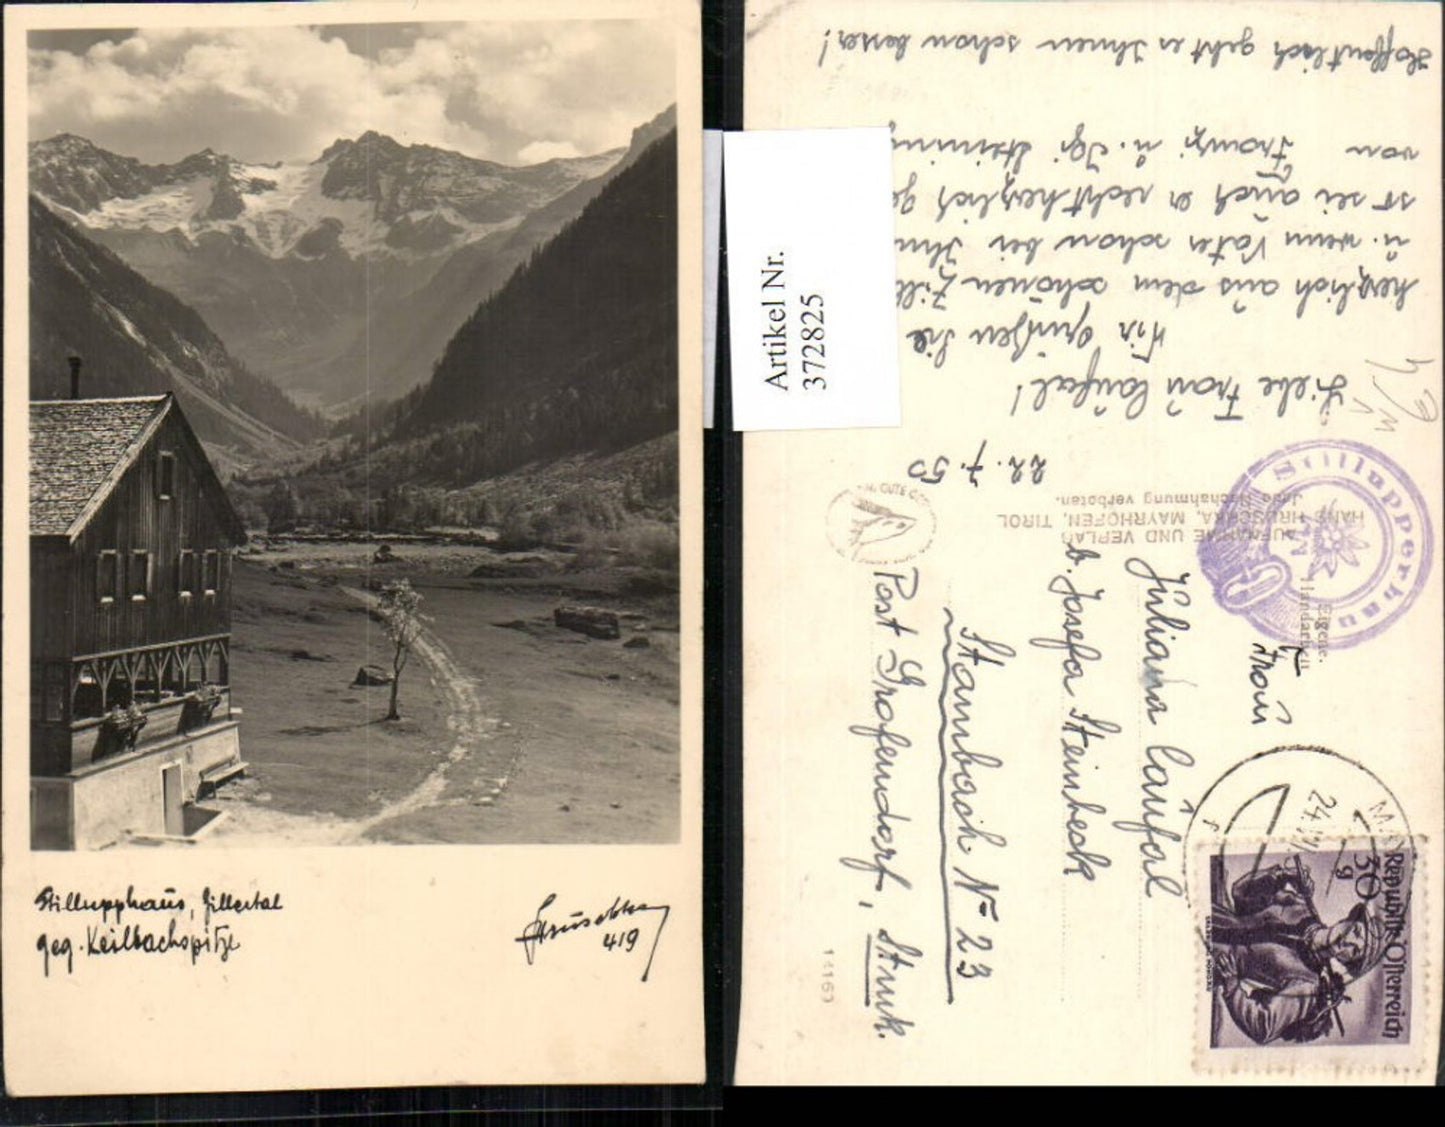 Stillupphaus, Zillertal
geg. Keilbachspitze
Hruschka
419
Artikel Nr.
372825
22.7.50
Liebe Frau Laufal!
Wir grüßen Sie
herzlich aus dem schönen Zill
u. wenn Vater schon bei Ihn
so sei auch er recht herzlich ge
von Franzi u. Igi Steining
Hoffentlich geht es Ihnen schon besser!
AUFNAHME UND VERLAG
HANS HRUSCHKA, MAYRHOFEN, TIROL
Jede Nachahmung verboten.
Stillupperhau
Eigene.
Handarbeit
Frau
Juliana Laufal
b. Josefa Steinbeck
Stambach Nº 23
Post Grafendorf, Stmk.
14163
24.VII
Republik Österreich
30 g